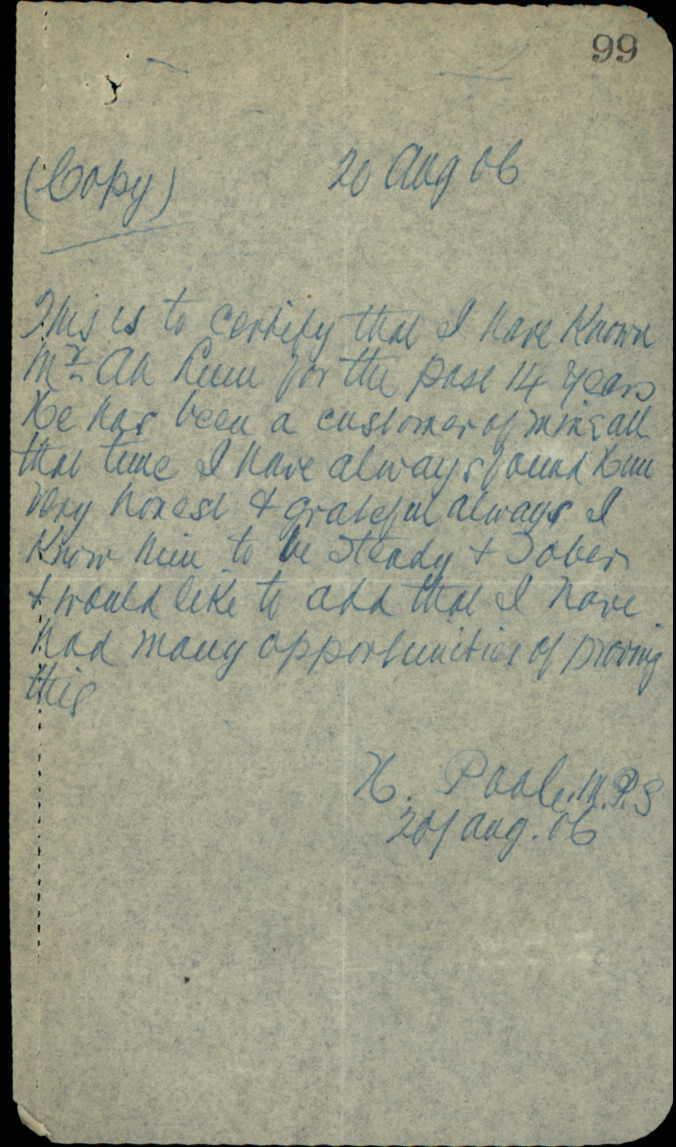 99
(Copy) 20 Aug 06
This is to certify that I have Known
Mr. Ah Lum for the past 14 years
He has been a customer of mine all
that time I have always found him
very honest & grateful always I
Know him to be Steady & Sober
& would like to add that I have
had many opportunities of proving
this
H. Poole. M.P.S
20/ Aug. 06